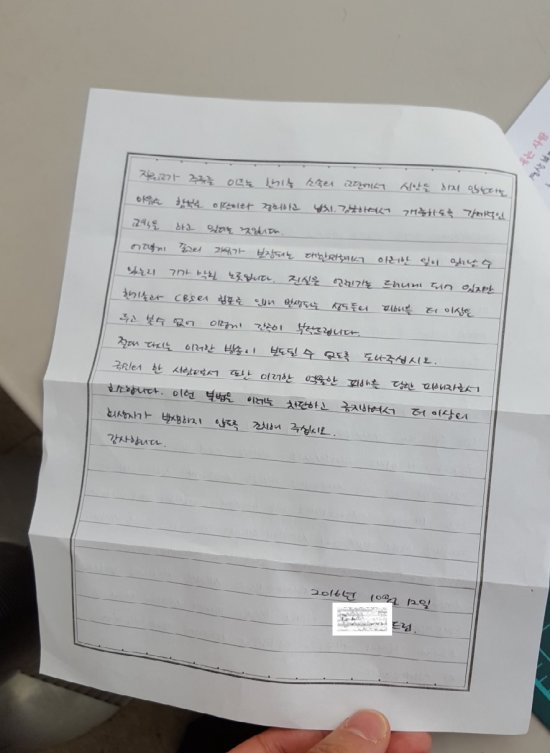 자유교가 주축을 이루는 한기총 소속의 교단에서 신앙을 하지 않는다는
이유로 함부로 이단이라 정의하고 납치, 감금하여서 개종하도록 강제적인
교육을 하고 있다는 것입니다.
어떻게 종교의 자유가 보장되는 대한민국에서 이러한 일이 일어날 수
있는지 기가 막힐 노릇입니다. 진실은 언젠가는 드러나게 되어 있지만
한기총과 CBS의 횡포로 인해 반영되는 성도들의 피해를 더 이상은
두고 볼 수 없어 이렇게 간곡히 부탁드립니다.
절대 다시는 이러한 방송이 보도될 수 없도록 도와주십시오.
국민의 한 사람으로서 또한 이러한 억울한 피해를 당한 피해자로서
호소합니다. 이런 불법을 이제는 차단하고 금지하여서 더 이상의
희생자가 발생하지 않도록 조치해 주십시오.
감사합니다.
2016년 10월 12일
드림.
웃는 사람